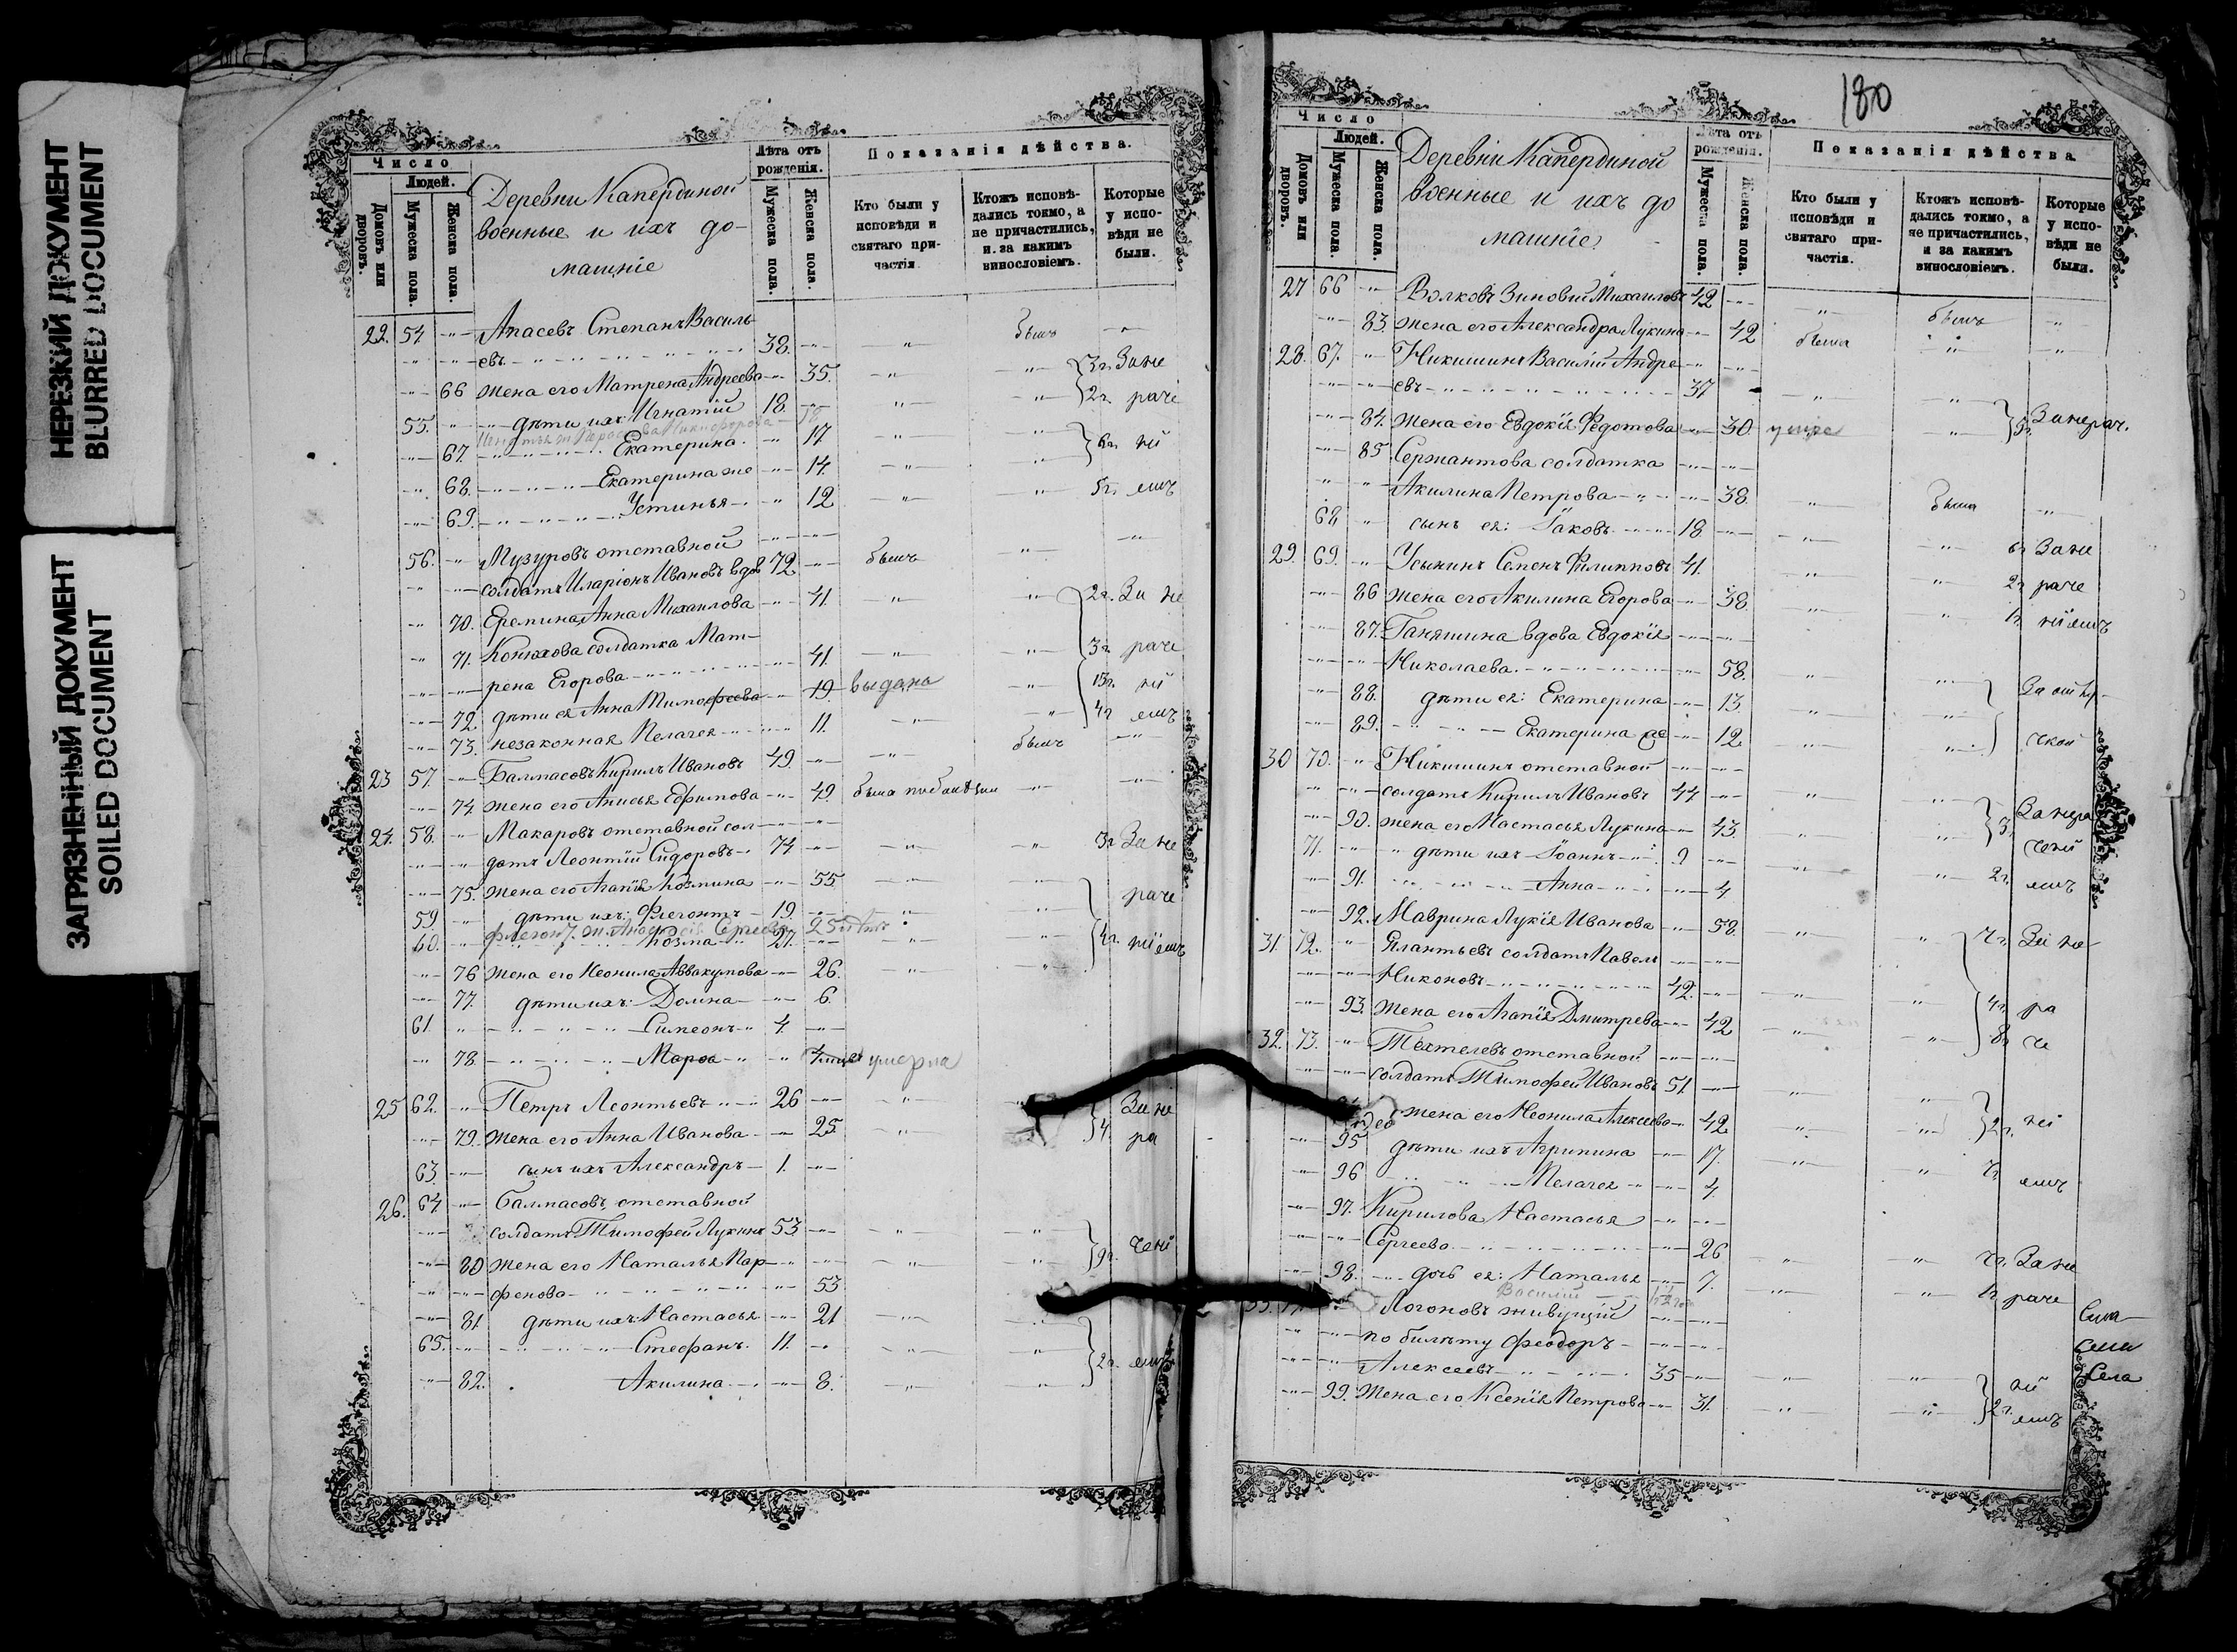 НЕРЕЗКИЙ ДОКУМЕНТ
BLURRED DOCUMENT
ЗАГРЯЗНЕННЫЙ ДОКУМЕНТ
SOILED DOCUMENT
Число
Людей.
Домовъ или дворовъ.
Мужеска пола.
Женска пола.
Деревни Капердиной
военные и ихъ до-
машніе
Лѣта отъ рожденія.
Мужеска пола.
Женска пола.
Показанія дѣйства.
Кто были у исповѣди и святаго при-частія.
Ктожъ исповѣ-дались токмо, а не причастились, и за какимъ винословіемъ.
Которые у испо-вѣди не были.
22. 54 Апасевъ Степанъ Василь
евъ 38. былъ
66 жена его Матрена Андреева 35. 3г. За не
55. дѣти ихъ Игнатій 18. 2г. раче
67. Екатерина. 17. 6г. ні
68. Екатерина же 14.
69. Устинья 12 5г. емъ
56. Музуровъ отставной
солдатъ Иларіонъ Ивановъ вдов 72 былъ
70. Еремина Анна Михаилова 41. 2г. За не
71. Конюхова солдатка Мат-
рена Егорова 41. 3г. раче
72. дѣти ея Анна Тимофеева 19. выдана ні
73. незаконная Пелагея 11. 4г емъ
23 57. Балмасовъ Кирилъ Ивановъ 49. былъ
74. жена его Анисья Ефимова 49. была
24. 58. Макаровъ отставной сол-
датъ Леонтій Сидоровъ 74 3г За не
75. жена его Агапія Козмина 55. раче
59. дѣти ихъ: Флегонтъ 19.
60. Козма 27. 4г. ніемъ
76 жена его Неонила Аввакумова 26.
77. дѣти ихъ: Домна 6.
61. Симеонъ 4.
78. Марѳа умерла
25 62. Петръ Леонтьевъ 26 За не
79. жена его Анна Иванова 25. 4. ра
63. сынъ ихъ Александръ 1.
26. 64 Балмасовъ отставной
солдатъ Тимофей Лукинъ 53.
80 жена его Наталья Пар- 9г. чені
фенова 53.
81. дѣти ихъ: Настасья 21
65. Стефанъ. 11. 2г. емъ
82. Акилина 8.
180
Число
Людей.
Домовъ или дворовъ.
Мужеска пола.
Женска пола.
Деревни Капердиной
военные и ихъ до
машніе
Лѣта отъ рожденія.
Мужеска пола.
Женска пола.
Показанія дѣйства.
Кто были у исповѣди и святаго при-частія.
Ктожъ исповѣ-дались токмо, а не причастились, и за какимъ винословіемъ.
Которые у испо-вѣди не были.
27 66 Волковъ Зиновій Михаиловъ 42 былъ
83. жена его Александра Лукина 42 была
28. 67. Никишинъ Василій Андре
евъ 37
84. жена его Евдокія Федотова 30. 3г. За нерач.
85 Сержантова солдатка
Акилина Петрова 38. была
68 сынъ ея: Іаковъ 18 6г За не
29. 69. Усынинъ Семенъ Филипповъ 41. 2г раче
86 жена его Акилина Егорова 38. 1г. ніемъ
87. Ганяшина вдова Евдокія
Николаева 58.
88. дѣти ея: Екатерина 13. За отлу-
89. Екатерина же 12. чкой
30 70. Никишинъ отставной
солдатъ Кирилъ Ивановъ 44.
90. жена его Настасья Лукина 43. 3. За нера
71. дѣти ихъ Іоаннъ 9 чені
91. Анна 4 2г. емъ
92. Маврина Лукія Иванова 58.
31. 72. Елантьевъ солдатъ Павелъ За не
Никоновъ 42.
93. жена его Агапія Дмитрева 42 4г. ра
32. 73. Техтелевъ отставной 8г че
солдатъ Тимофей Ивановъ 51.
жена его Неонила Алексеева 42 2г. ні
95 дѣти ихъ Агрипина 17.
96 Пелагея 4. емъ
97. Кирилова Настасья
Сергеева 26 За не
98. дочь ея: Наталья 7. 1г раче
Василій
Логоновъ живущій
по билѣту Феодоръ
Алексеевъ 35 ні
99. жена его Ксенія Петрова 31. 2г. емъ
Села